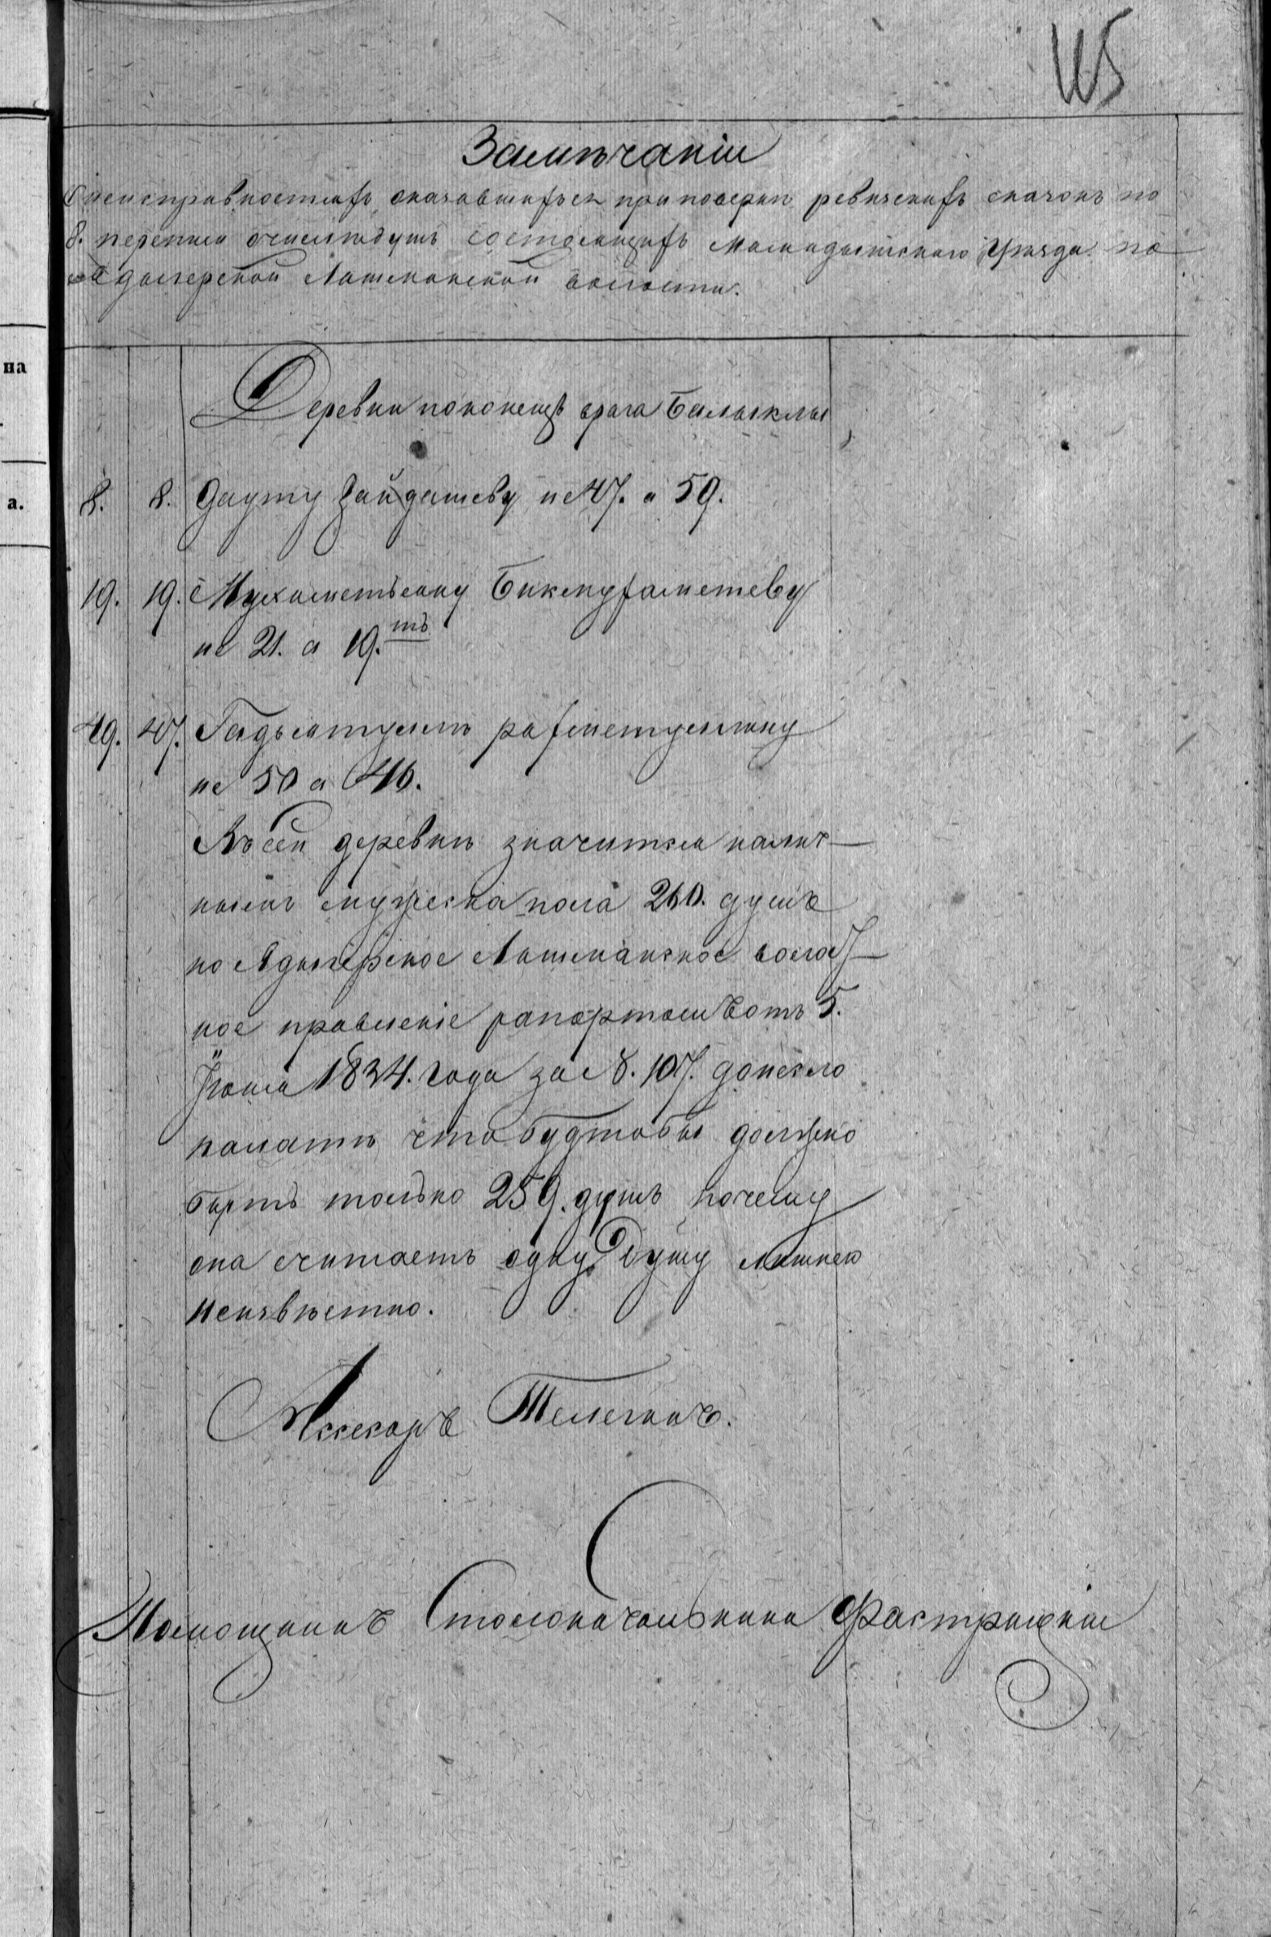 115
на
а.
Замѣчаніи
О неисправностяхъ оказавшихся при поверкѣ ревизскихъ сказокъ по
8. переписи о числѣ душъ состоящихъ Мамадышскаго Уѣзда по
Адаперской Лашманской волости.
Деревни поконецъ врага Балыклы
8. 8. Дауту Зайдашеву не 47. а 59.
19. 19. Мухаметьяну Бикмухаметеву
не 21. а 19.тъ
49. 47. Гадьлтуллѣ рахметуллину
не 50 а 46.
Въ сей деревнѣ значится налич-
ныхъ мужеска пола 260. душъ
но Адаперское Лашманское волост-
ное правленіе рапортомъ отъ 5.
Іюня 1834. года за №. 107. донесло
палатѣ что будтобы должно
быть только 259. душъ почему
она считаетъ одну душу лишнею
неизвѣстно.
Ассесоръ Телегинъ.
Помощникъ Столоначальника